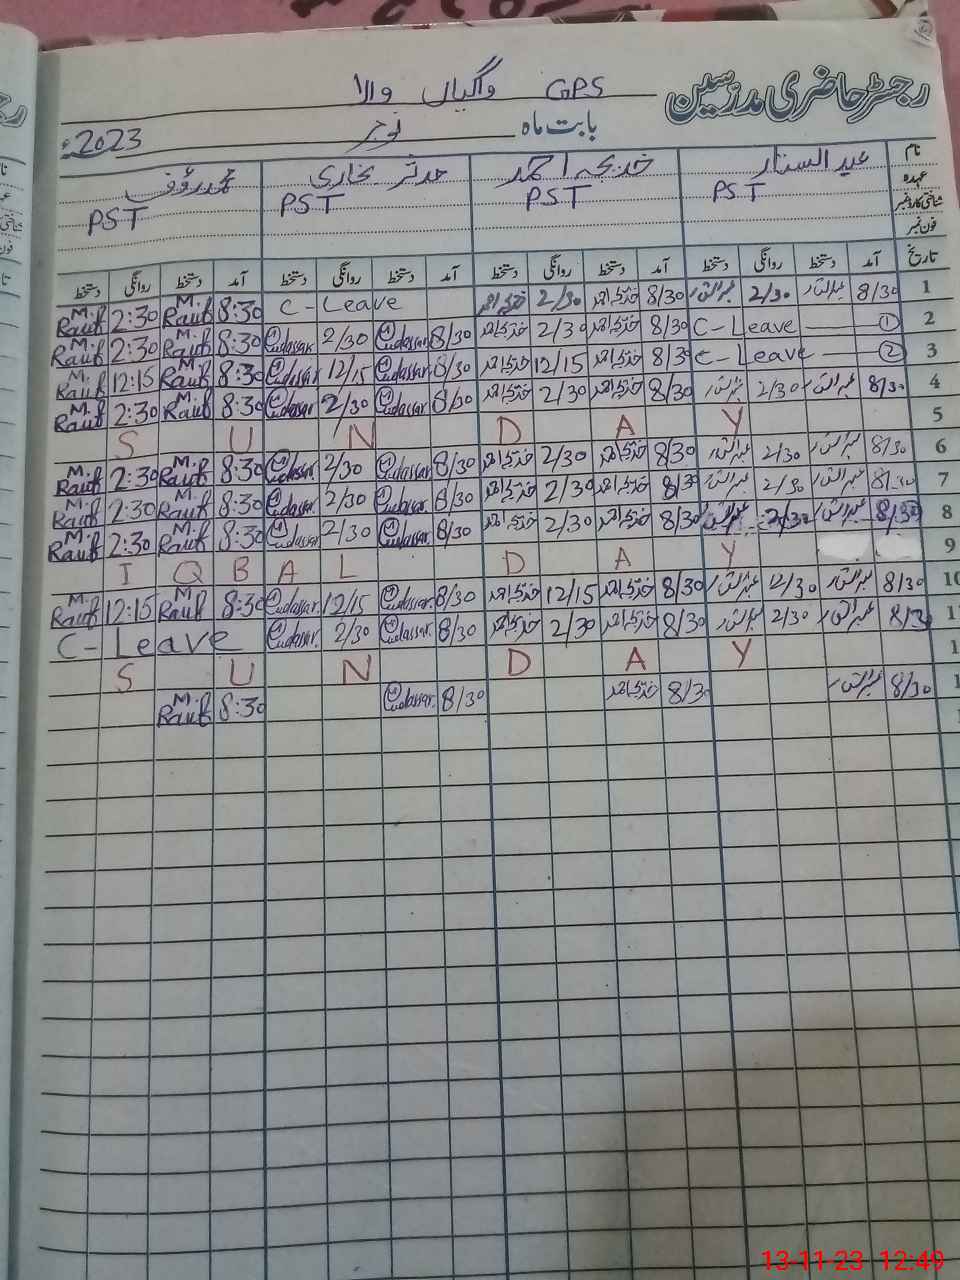 رجسٹر حاضری مدرسین
GPS واگیاں والا
بابت ماہ نومبر 2023ء
نام عبدالستار خدیجہ احمد مدثر بخاری محمد رؤف
عہدہ PST PST PST PST
شناختی کارڈ نمبر
فون نمبر
تاریخ آمد دستخط روانگی دستخط آمد دستخط روانگی دستخط آمد دستخط روانگی دستخط آمد دستخط روانگی دستخط
1 8/30 عبدالستار 2/30 عبدالستار 8/30 خدیجہ احمد 2/30 خدیجہ احمد C-Leave 8:30 M. Rauf 2:30 M. Rauf
2 C-Leave ① 8/30 خدیجہ احمد 2/30 خدیجہ احمد 8/30 Mudassar 2/30 Mudassar 8:30 M. Rauf 2:30 M. Rauf
3 C-Leave ② 8/30 خدیجہ احمد 12/15 خدیجہ احمد 8/30 Mudassar 12/15 Mudassar 8:30 M. Rauf 12:15 M. Rauf
4 8/30 عبدالستار 2/30 عبدالستار 8/30 خدیجہ احمد 2/30 خدیجہ احمد 8/30 Mudassar 2/30 Mudassar 8:30 M. Rauf 2:30 M. Rauf
5 S U N D A Y
6 8/30 عبدالستار 2/30 عبدالستار 8/30 خدیجہ احمد 2/30 خدیجہ احمد 8/30 Mudassar 2/30 Mudassar 8:30 M. Rauf 2:30 M. Rauf
7 8/30 عبدالستار 2/30 عبدالستار 8/30 خدیجہ احمد 2/30 خدیجہ احمد 8/30 Mudassar 2/30 Mudassar 8:30 M. Rauf 2:30 M. Rauf
8 8/30 عبدالستار 2/30 عبدالستار 8/30 خدیجہ احمد 2/30 خدیجہ احمد 8/30 Mudassar 2/30 Mudassar 8:30 M. Rauf 2:30 M. Rauf
9 I Q B A L D A Y
10 8/30 عبدالستار 12/30 عبدالستار 8/30 خدیجہ احمد 12/15 خدیجہ احمد 8/30 Mudassar 12/15 Mudassar 8:30 M. Rauf 12:15 M. Rauf
11 8/3 عبدالستار 2/30 عبدالستار 8/30 خدیجہ احمد 2/30 خدیجہ احمد 8/30 Mudassar 2/30 Mudassar C-Leave
1 S U N D A Y
1 8/30 عبدالستار 8/30 خدیجہ احمد 8/30 Mudassar 8:30 M. Rauf
1
13-11-23 12:49